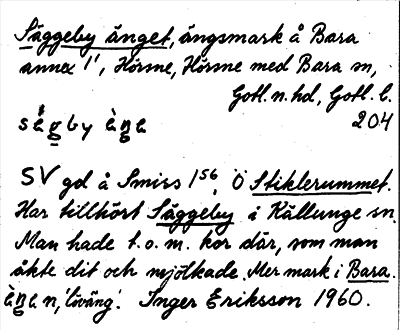 Säggeby änget, ängsmark å Bara
annex 1¹, Hörsne, Hörsne med Bara sn,
Gotl. n. hd, Gotl. l.
sɛ́gby ɛ̀ŋɛ 204
SV gd å Smiss 1⁵⁶, Ö Stiklerummet.
Har tillhört Säggeby i Källunge sn.
Man hade t.o.m. kor där, som man
åkte dit och mjölkade. Mer mark i Bara.
ɛ̀ŋɛ n, 'löväng'. Inger Eriksson 1960.